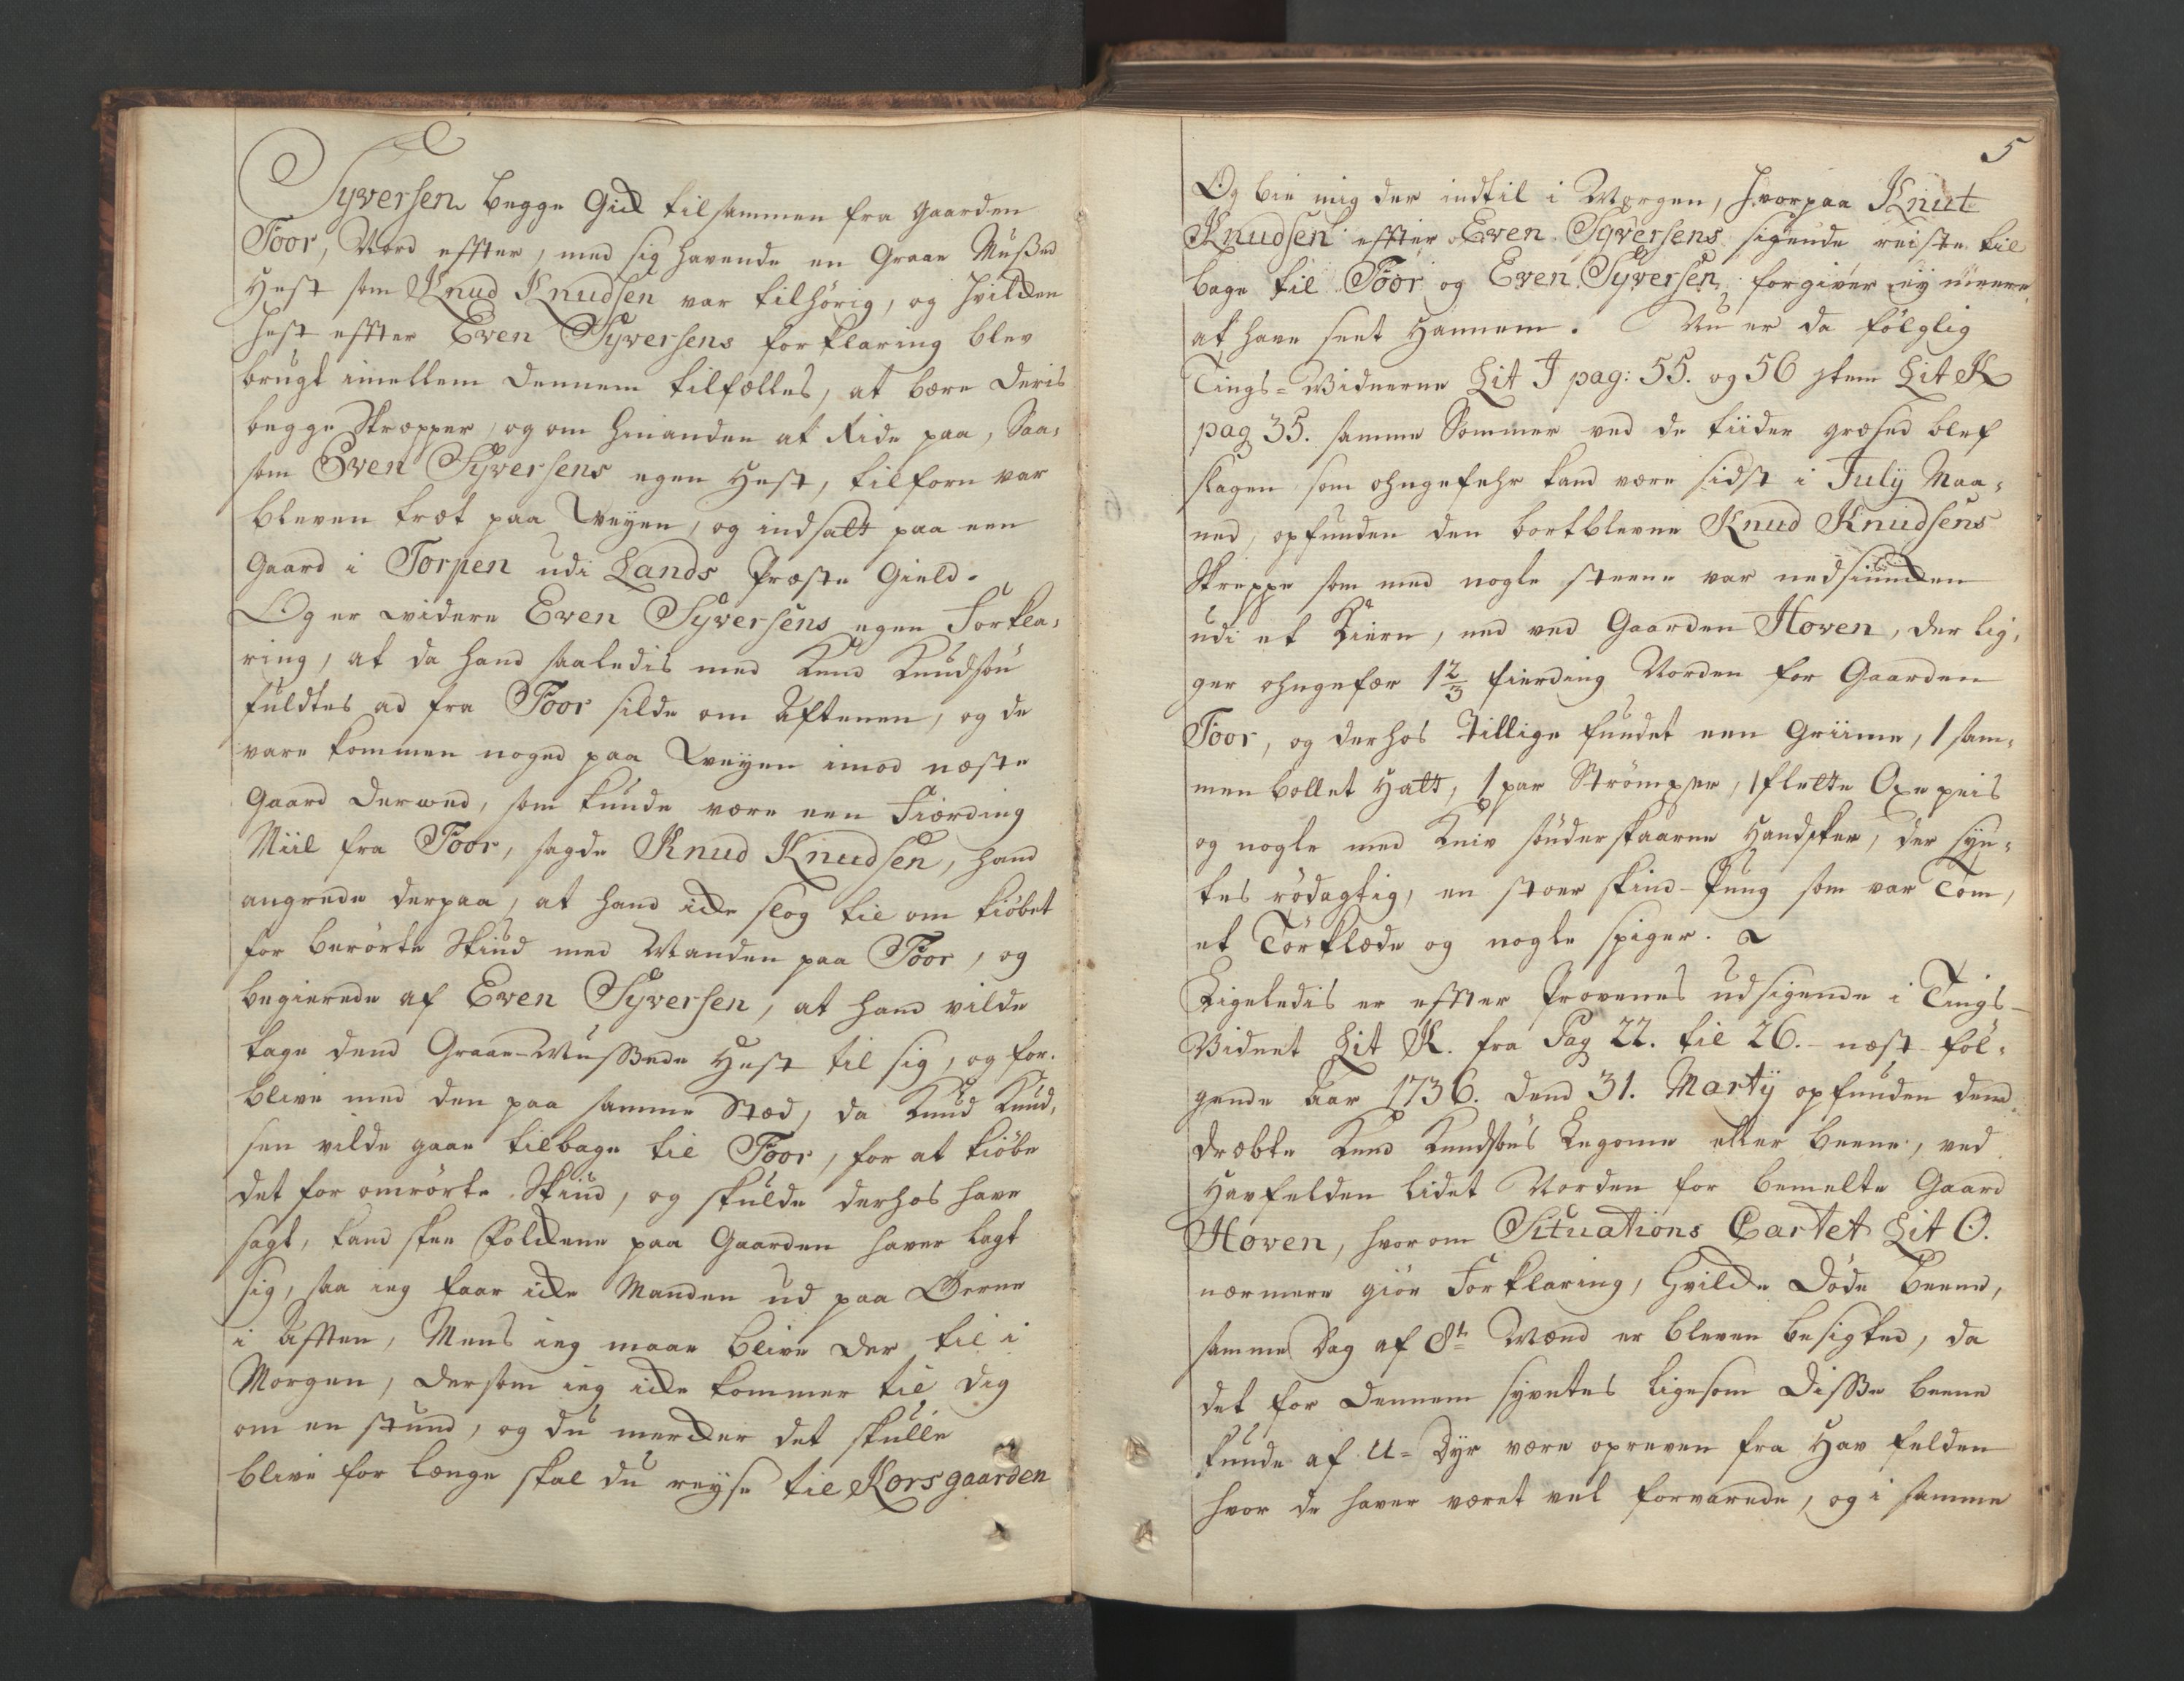 Syversen begge Gick tilsammen fra gaarden
Toor, Nord effter, med sig havende en Graae Mußed
Hest som Knud Knudsen var tilhörig, og hvilcken
hest effter Even Syversens forklaring blev
brugt imellem dennem tilfælles, at bære deris
begge Skræpper, og om hinanden at Ride paa, Saa-
som Even Syversens egen Hest, tilforn var
bleven træt paa Veyen, og indsatt paa een
Gaard i Torpen udi Lands Præste Gield.
Og er widere Even Syversens egen Forkla-
ring, at da hand saaledis med Knud Knudsön
fuldtes ad fra Toor silde om Aftenen, og de
vare kommen noged paa Veyen imod næste
Gaard derved, som kunde være een Fiærding
Miil fra Toor, sagde Knud Knudsen, hand
angrede derpaa, at hand icke slog til om kiöbet
for berörte Skind med Manden paa Toor, og
begierede af Even Syversen, at hand vilde
tage dend Graae-Mussede Hest til sig, og for-
blive med den paa samme Stæd, da Knud Knud-
sen vilde gaae tilbage til Toor, for at kiöbe
det for omrörte Skind, og skulde derhos have
sagt, kand skee Folckene paa Gaarden haver lagt
sig, saa ieg faar icke Manden ud paa
i Afften, Mens ieg maae blive der til i
Morgen, dersom ieg icke kommer til dig
om en stund, og du mercker det skulle
blive for længe skal du reyse til Korsgaarden
5
Og bie mig der indtil i Morgen, hvorpaa Knut
Knudsen effter Even Syversens sigende reiste til
bage til Toor og Even Syversen forgiver ey meere
at have seet Hannem. Nu er da fölglig
Tings-Vidnerne Lit I pag: 55. og 56 Item Lit K
pag 35. samme Sommer ved de tiider græsed blef
slagen som ohngefehr kand være sidst i July Maa-
ned, opfunden den bortblevne Knud Knudsens
Skreppe som med nogle steene var nedsiuncken
udi et Kiern, ned ved Gaarden Hoven, der lig-
ger ohngefær 1 2/3 fierding Norden for Gaarden
Toor, og derhos tillige fundet een Griime, 1 sam-
men bollet Hatt, 1 par Strömper, 1 flette Oxe peis
og nogle med Kniv sönderskaarne Handsker, der syn-
tes rödagtig, en stoer skind-Pung som var Tom,
et Törklæde og nogle spiger.
Ligeledis er effter Provenes udsigende i Tings-
Vidnet Lit K. fra Pag 22. til 26. næst föl-
gende Aar 1736. dend 31. Martÿ opfunden dend
dræbte Knud Knudsöns Legome eller beene, ved
Havfelden lidet Norden for bemelte Gaard
Hoven, hvor om Situations Cartet Lit O.
nærmere giör Forklaring, hvilcke döde beene,
samme dag af 8te Mænd er bleven besigtet, da
det for dennem syntes ligesom disse beene
kunde af U-dyr være opreven fra Hav felden
hvor de haver været vel forvarede, og i samme